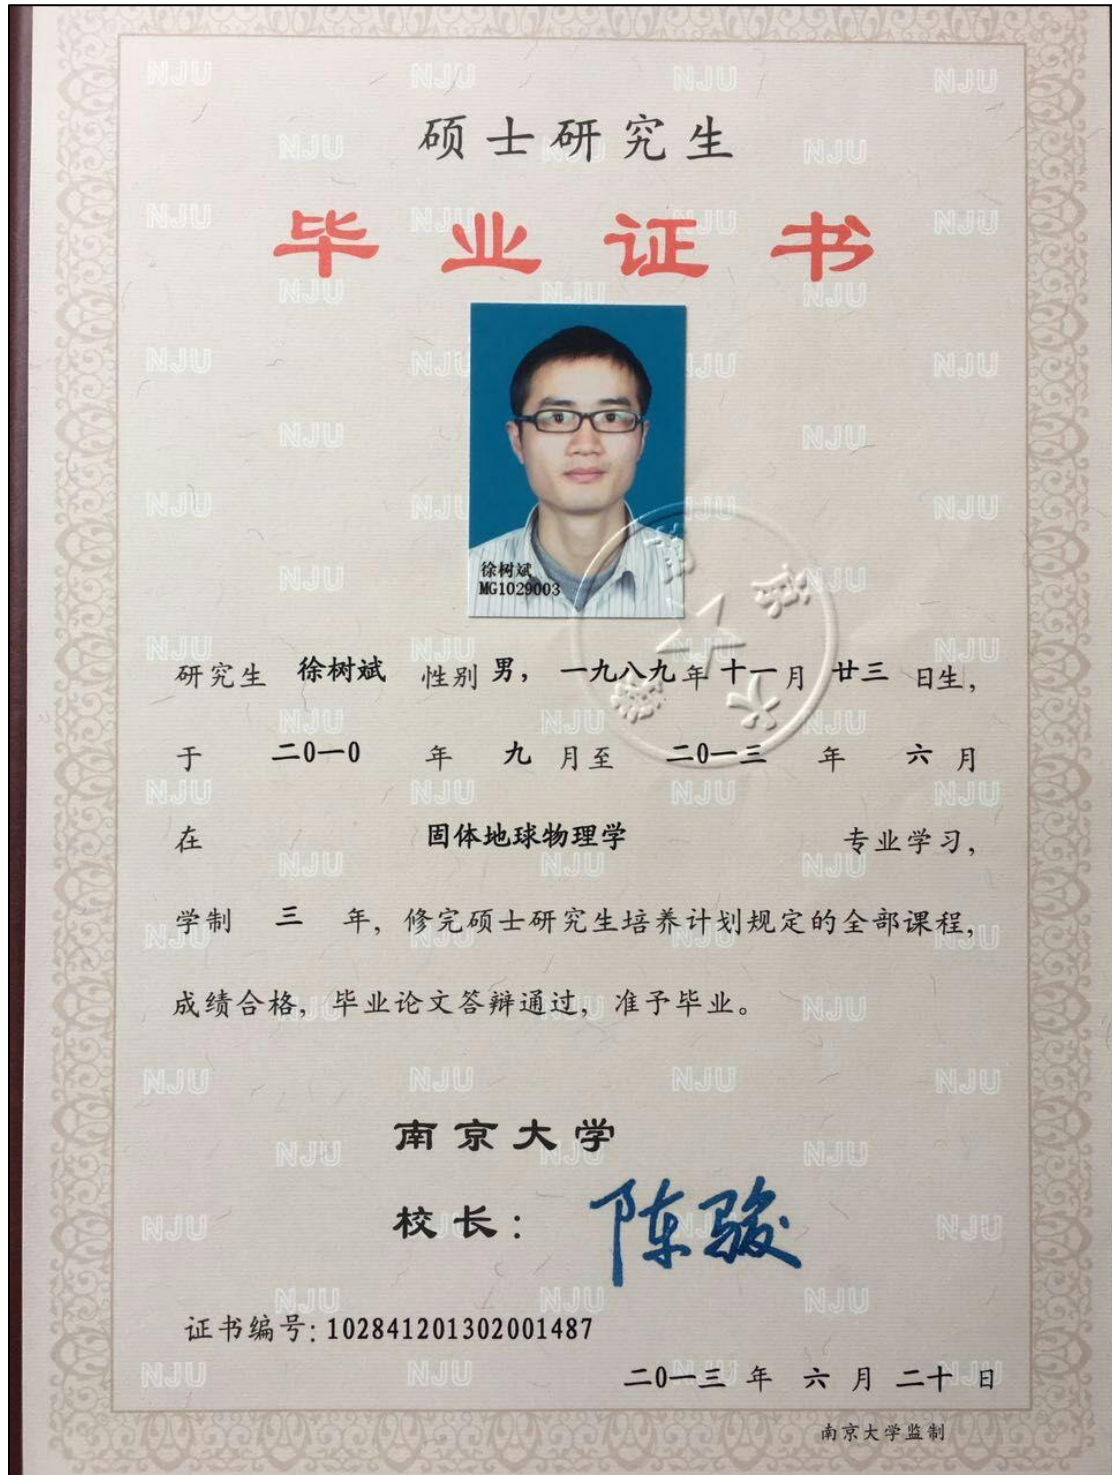 硕士研究生
毕业证书
徐树斌
MG1029003
研究生 徐树斌 性别 男， 一九八九 年 十一 月 廿三 日生，
于 二0一0 年 九 月至 二0一三 年 六 月
在 固体地球物理学 专业学习，
学制 三 年，修完硕士研究生培养计划规定的全部课程，
成绩合格，毕业论文答辩通过，准予毕业。
南京大学
校长：陈骏
证书编号：102841201302001487
二0一三 年 六 月 二十 日
南京大学监制
NJU